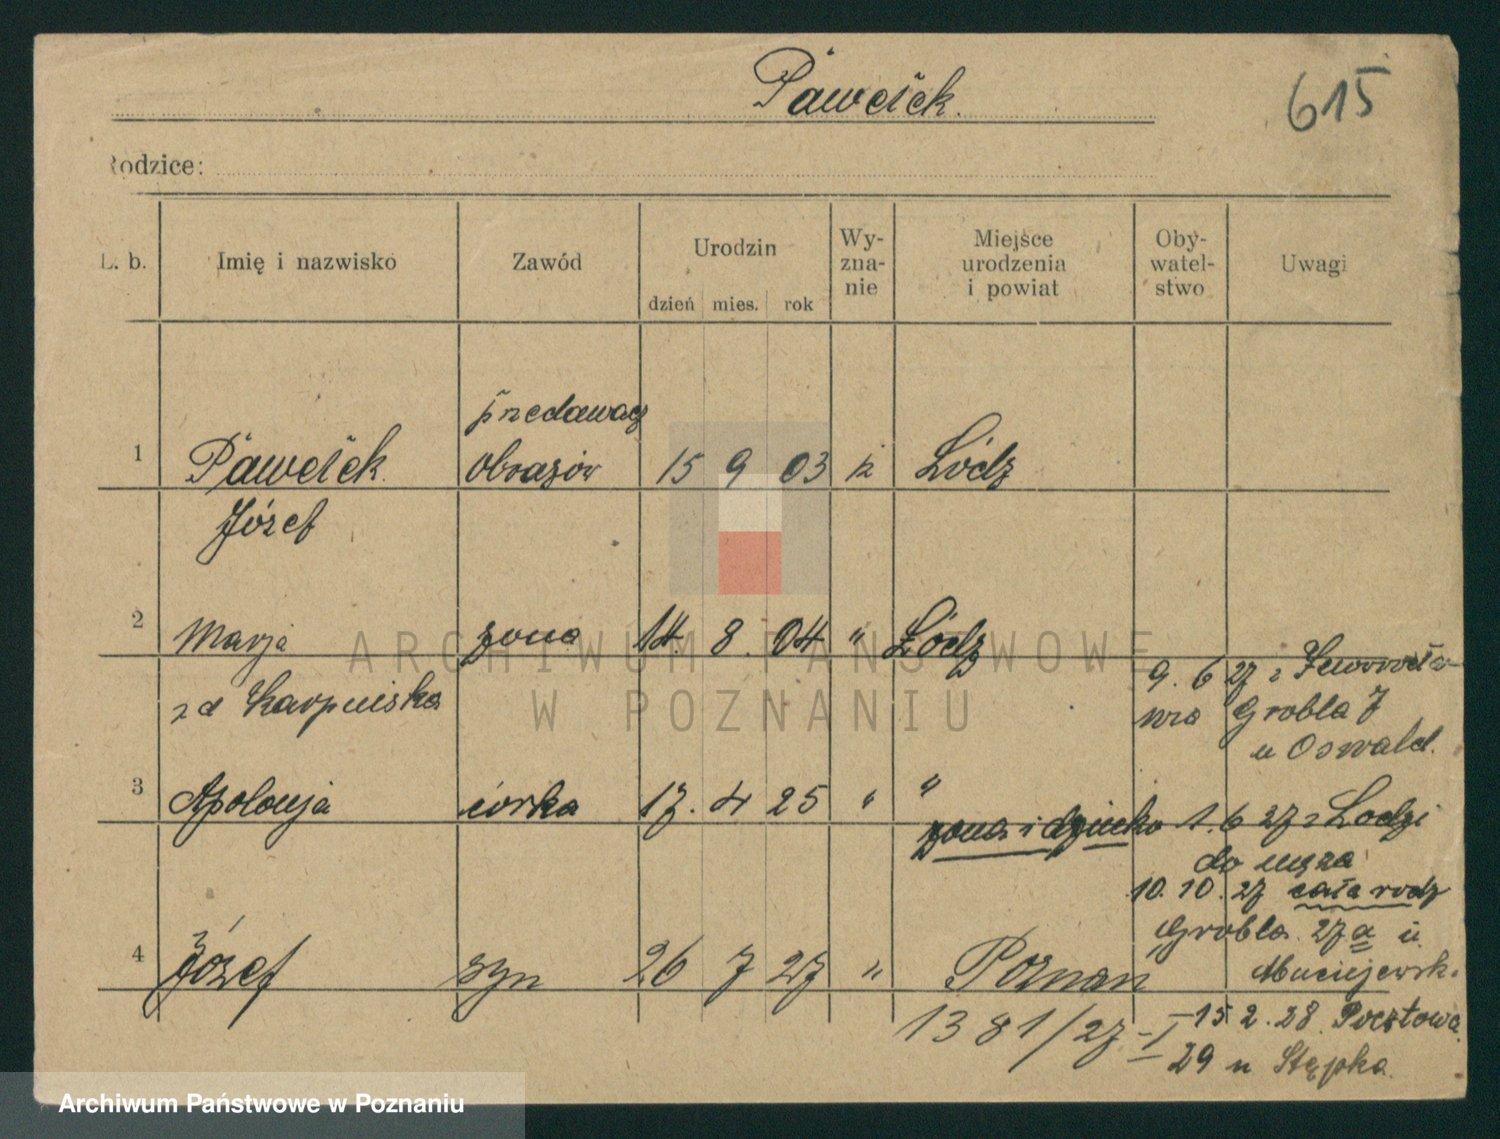 Pawełek.
615
Rodzice:
L. b.
Imię i nazwisko
Zawód
Urodzin
dzień mies. rok
Wy-
zna-
nie
Miejsce
urodzenia
i powiat
Oby-
watel-
stwo
Uwagi
1 Pawełek obrazów 15 9 03 k Łódz
Józef
2 Marja żona 14. 8. 04 " Łódz
z d Karpińska
9. 6 27 z
Grobla 7
u Oswald.
3 Apolonja córka 17. 4 25 " "
żona i dziecko 1. 6 27 z Lodzi
do męża
10. 10. 27 cała rodz
Grobla 27a u
Maciejewsk.
4 Józef syn 26 7 27 " Poznan
1381/27-I
15 2. 28. Pocztowa
29 u Stępka.
ARCHIWUM PAŃSTWOWE
W POZNANIU
Archiwum Państwowe w Poznaniu